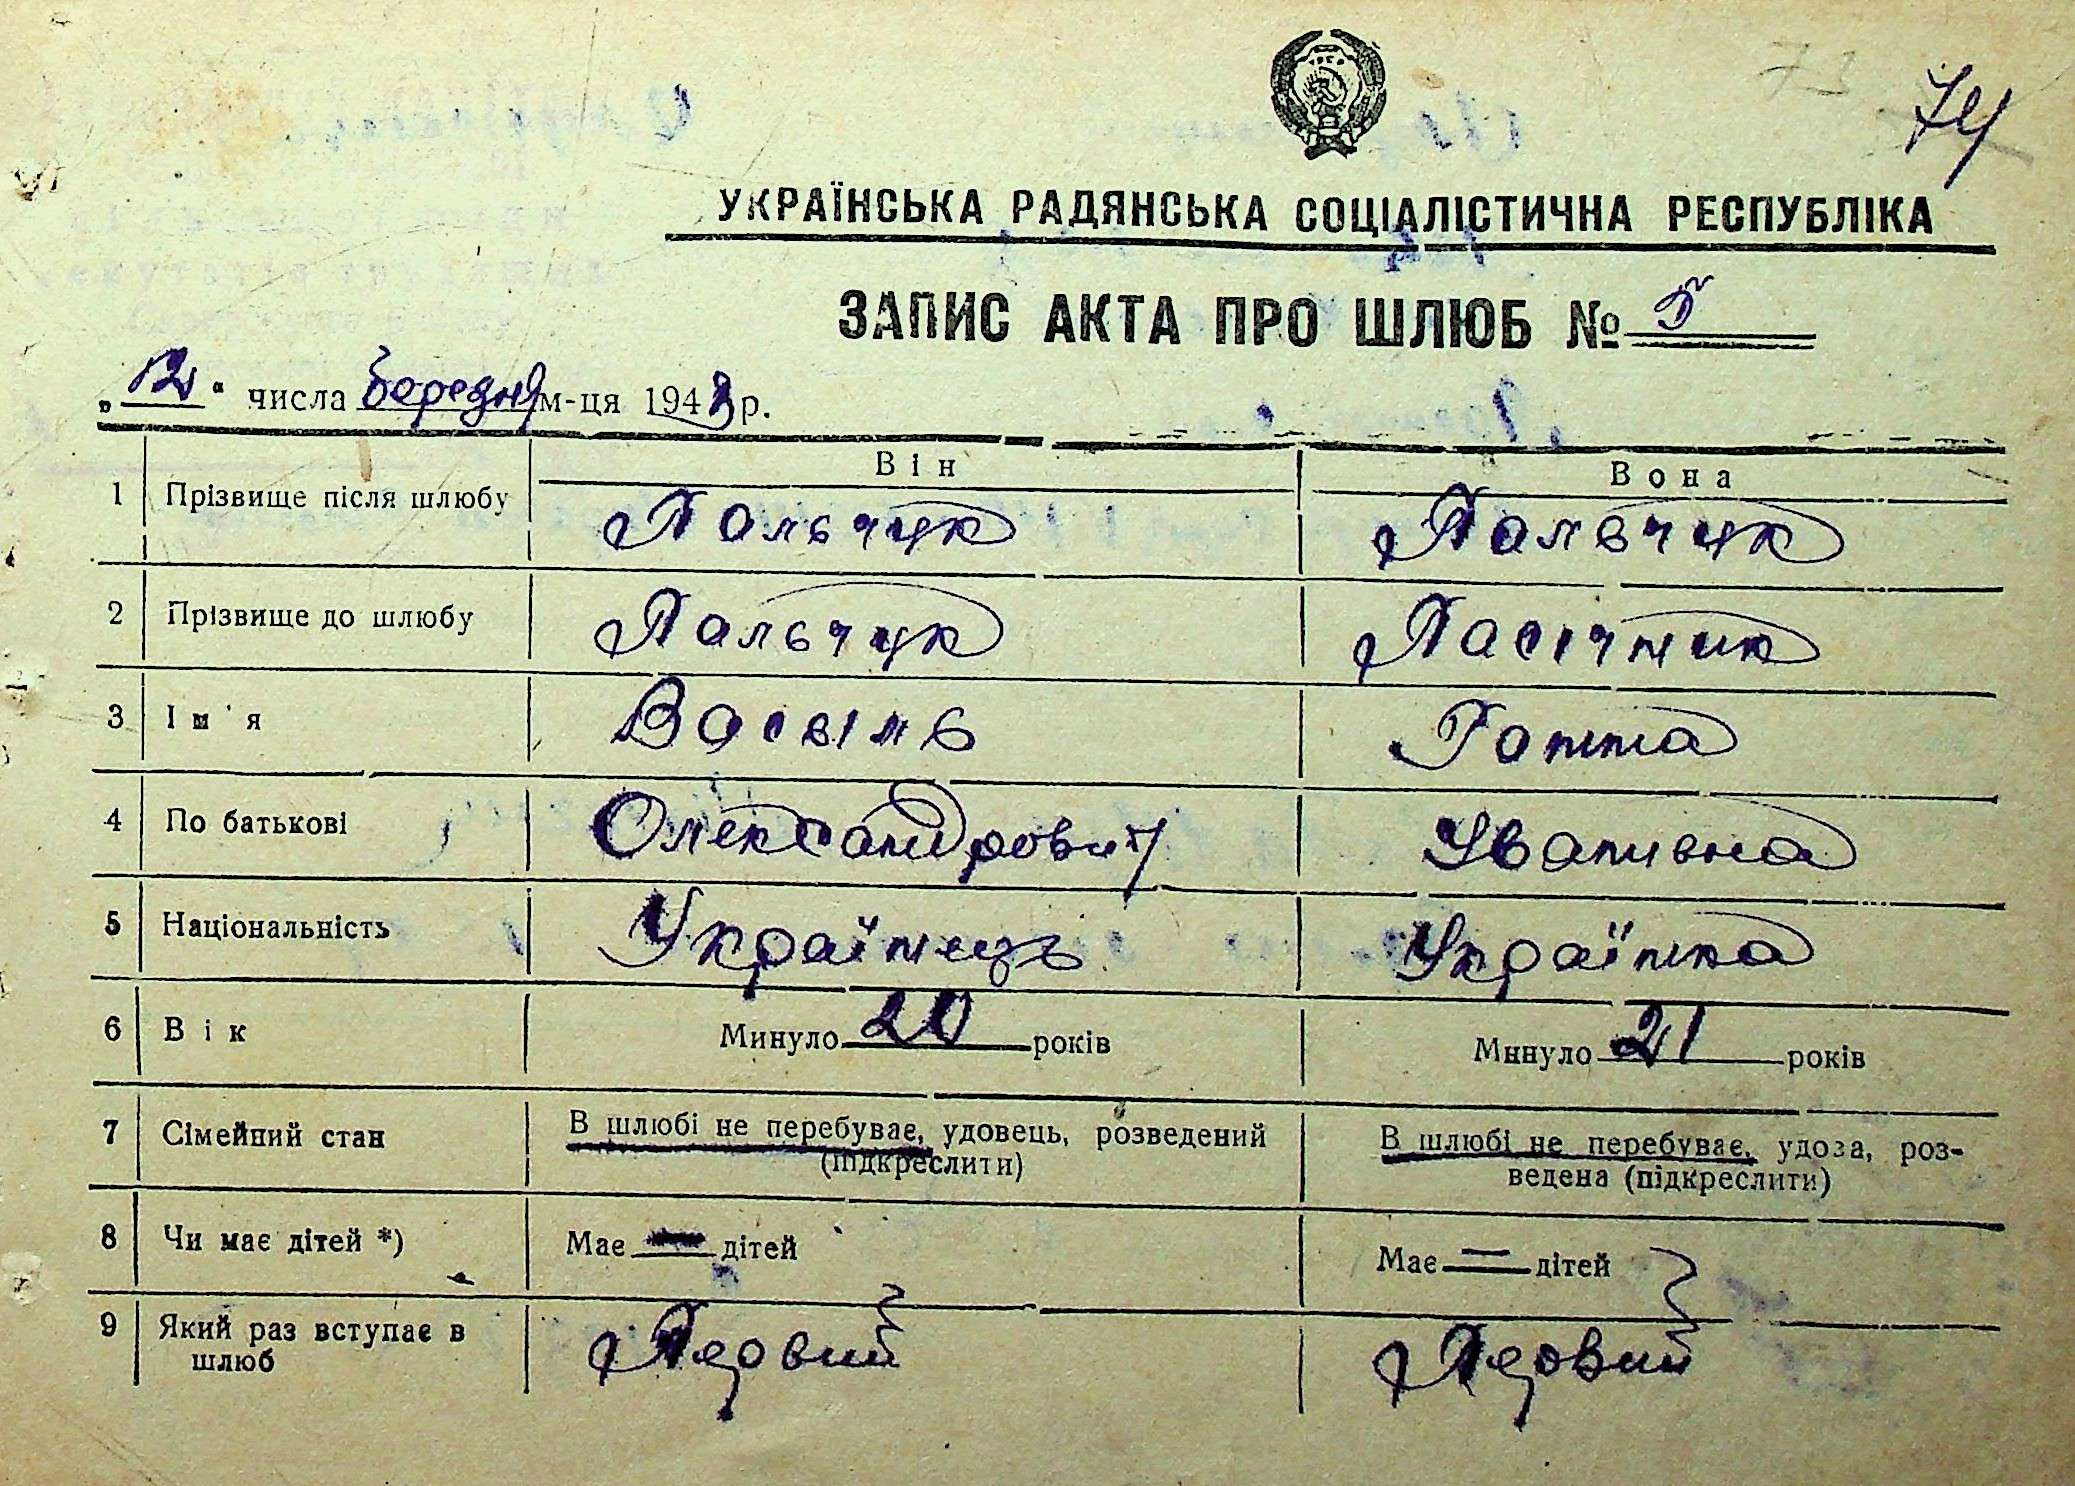 73
74
УКРАЇНСЬКА РАДЯНСЬКА СОЦІАЛІСТИЧНА РЕСПУБЛІКА
ЗАПИС АКТА ПРО ШЛЮБ № 5
„12“ числа березня м-ця 1943 р.
Він Вона
1 Прізвище після шлюбу Пальчук Пальчук
2 Прізвище до шлюбу Пальчук Пасічник
3 Ім'я Василь Ганна
4 По батькові Олександрович Іванивна
5 Національність Українець Українка
6 Вік Минуло 20 років Минуло 21 років
7 Сімейний стан В шлюбі не перебуває, удовець, розведений В шлюбі не перебуває, удова, роз-
(підкреслити) ведена (підкреслити)
8 Чи має дітей *) Має — дітей Має — дітей
9 Який раз вступає в Первий Первий
шлюб